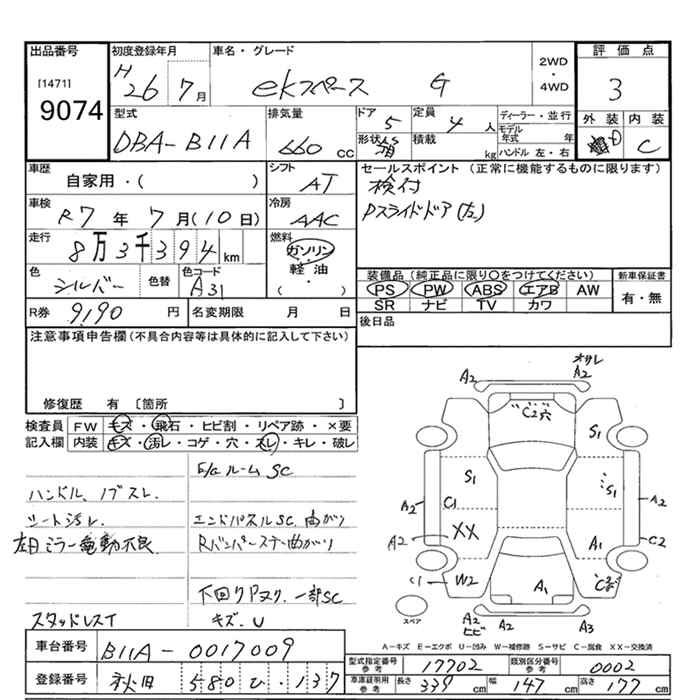 出品番号 初度登録年月 車名・グレード 2WD ・ 4WD 評価点
[1471] H26 7月 ekスペース G 3
9074
型式 排気量 ドア 定員 ディーラー・並行 外装 内装
DBA-B11A 660 CC 5 4 人 モデル年式 年
形状 積載 kg ハンドル 左・右 C
車歴 シフト セールスポイント (正常に機能するものに限ります)
自家用・( ) AT 検付
車検 冷房 Pスライドドア(左)
R7年 7月(10日) AAC
走行 燃料
8万3千394 km ガソリン・軽油・( )
色 色替 色コード 装備品 (純正品に限り○をつけてください) 新車保証書
シルバー A31 PS PW ABS エアB AW 有・無
SR ナビ TV カワ
R券 9,190 円 名変期限 月 日 後日品
注意事項申告欄(不具合内容等は具体的に記入して下さい)
修復歴 有 〔箇所 〕
検査員 FW キズ・飛石・ヒビ割・リペア跡・×要
記入欄 内装 キズ・汚レ・コゲ・穴・スレ・キレ・破レ
E/gルームSC
ハンドル、ノブスレ
シート汚レ エンドパネルSC、曲がり
左ミラー電動不良 Rバンパーステー曲がり
下回りPヌリ、一部SC
スタッドレスT キズ、U
オサレ
A2 A2
C2穴
S1
S1 S1
A2 C1 A2
A2 XX A1 C2
C1 W2 A1 C2
A2 ヒビ A2 A3
スペア
A-キズ E-エクボ U-凹み W-補修跡 S-サビ C-腐食 XX-交換済
車台番号 B11A-0017009
型式指定番号 参考 17702 類別区分番号 参考 0002
登録番号 秋田 580 ひ ・137
車庫証明用 参考 長さ 339 cm 幅 147 cm 高さ 177 cm